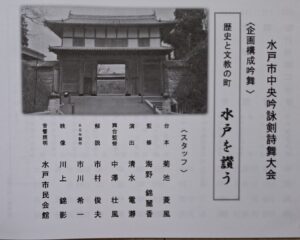 水戸市中央吟詠剣詩舞大会
〈企画構成吟舞〉
歴史と文教の町
水戸を讃う
〈スタッフ〉
台本 菊池菱風
監修 海野錦麗香
演出 清水電瀞
舞台監督 中澤壮風
解説 市村俊夫
市川希一
映像 川上錦影
音響照明 水戸市民会館